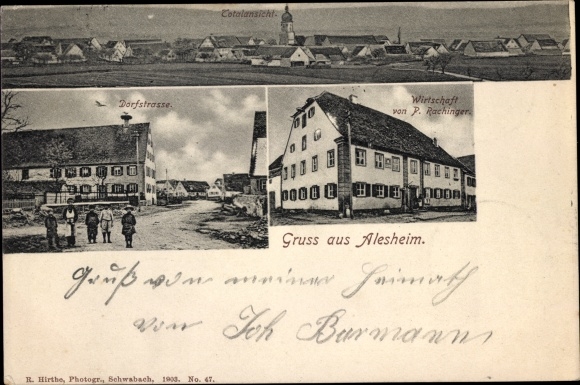 Totalansicht.
Dorfstrasse.
Wirtschaft
von P. Rachinger.
Gruss aus Alesheim.
Gruß von meiner Heimath
von Joh Burmann
R. Hirthe, Photogr., Schwabach, 1903. No. 47.